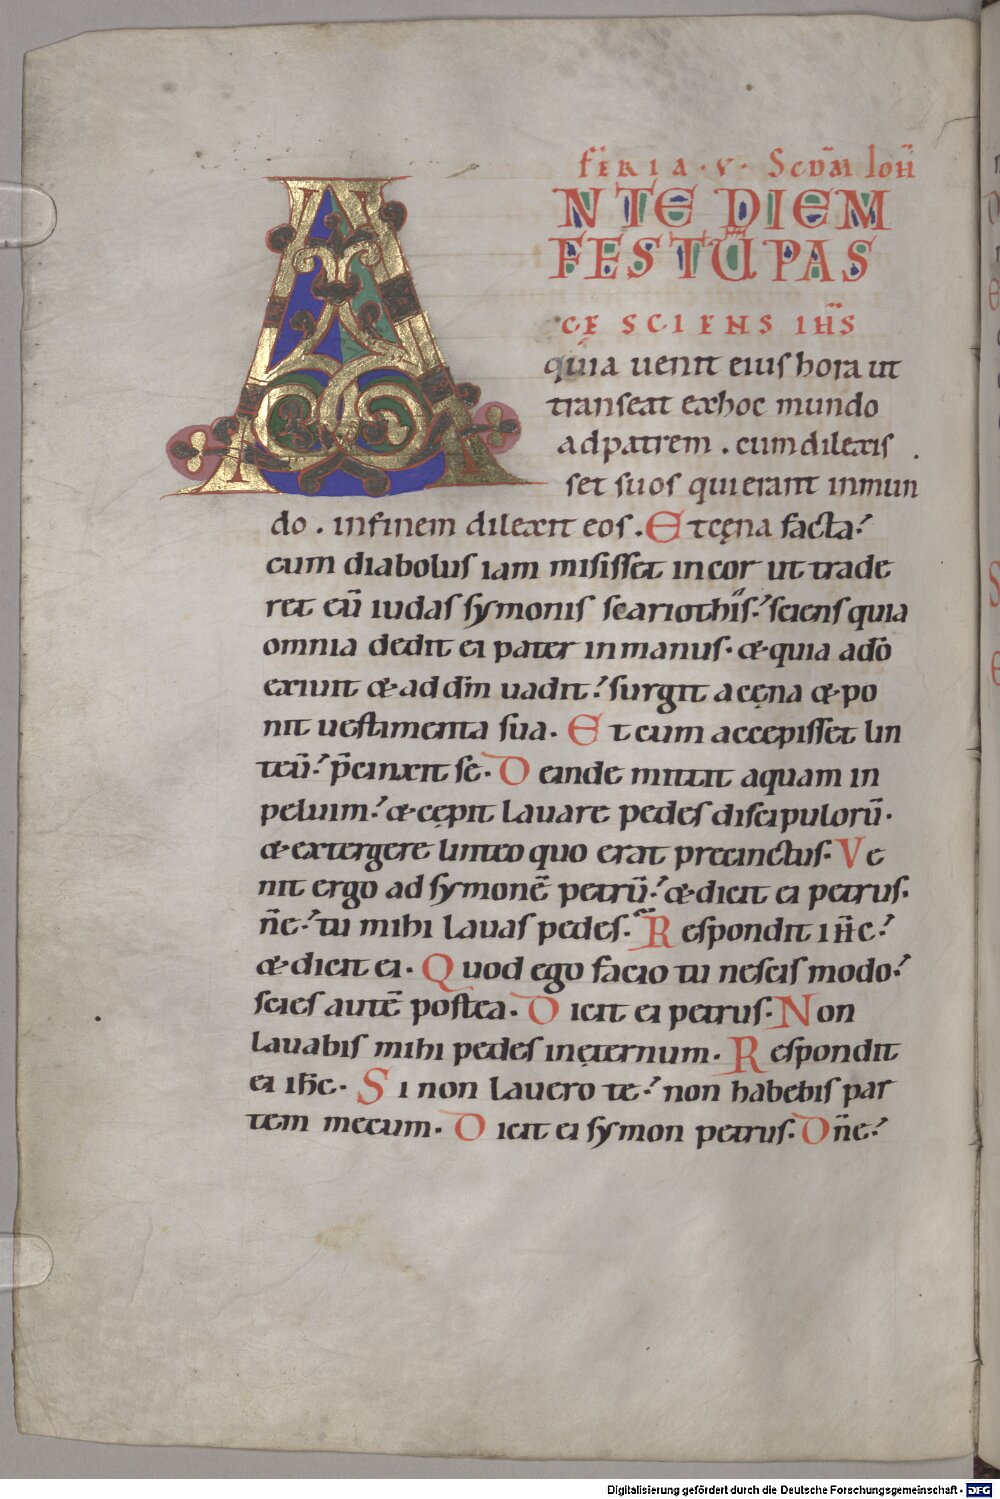 FERIA · V · SCDM IOH̄
ANTE DIEM
FESTŪ PAS
CĘ SCIENS IH̄S
quia uenit eius hora ut
transeat ex hoc mundo
ad patrem . cum dilexis
set suos qui erant in mun
do . in finem dilexit eos . Et cęna facta?
cum diabolus iam misisset in cor ut trade
ret eū iudas symonis scariothis? sciens quia
omnia dedit ei pater in manus · & quia a dō
exiuit & ad dm̄ uadit? surgit a cęna & po
nit uestimenta sua · Et cum accepisset lin
teū? p̄cinxit se · Deinde mittit aquam in
peluim? & cępit lauare pedes discipulorū ·
& extergere linteo quo erat precinctus · Ve
nit ergo ad symonē petrū? & dicit ei petrus ·
n̄e? tu mihi lauas pedes · Respondit ih̄c?
& dicit ei · Quod ego facio tu nescis modo?
scies autē postea · Dicit ei petrus · Non
lauabis mihi pedes in ęternum · Respondit
ei ih̄c · Si non lauero te? non habebis par
tem mecum · Dicit ei symon petrus · Dn̄e?
Digitalisierung gefördert durch die Deutsche Forschungsgemeinschaft - DFG